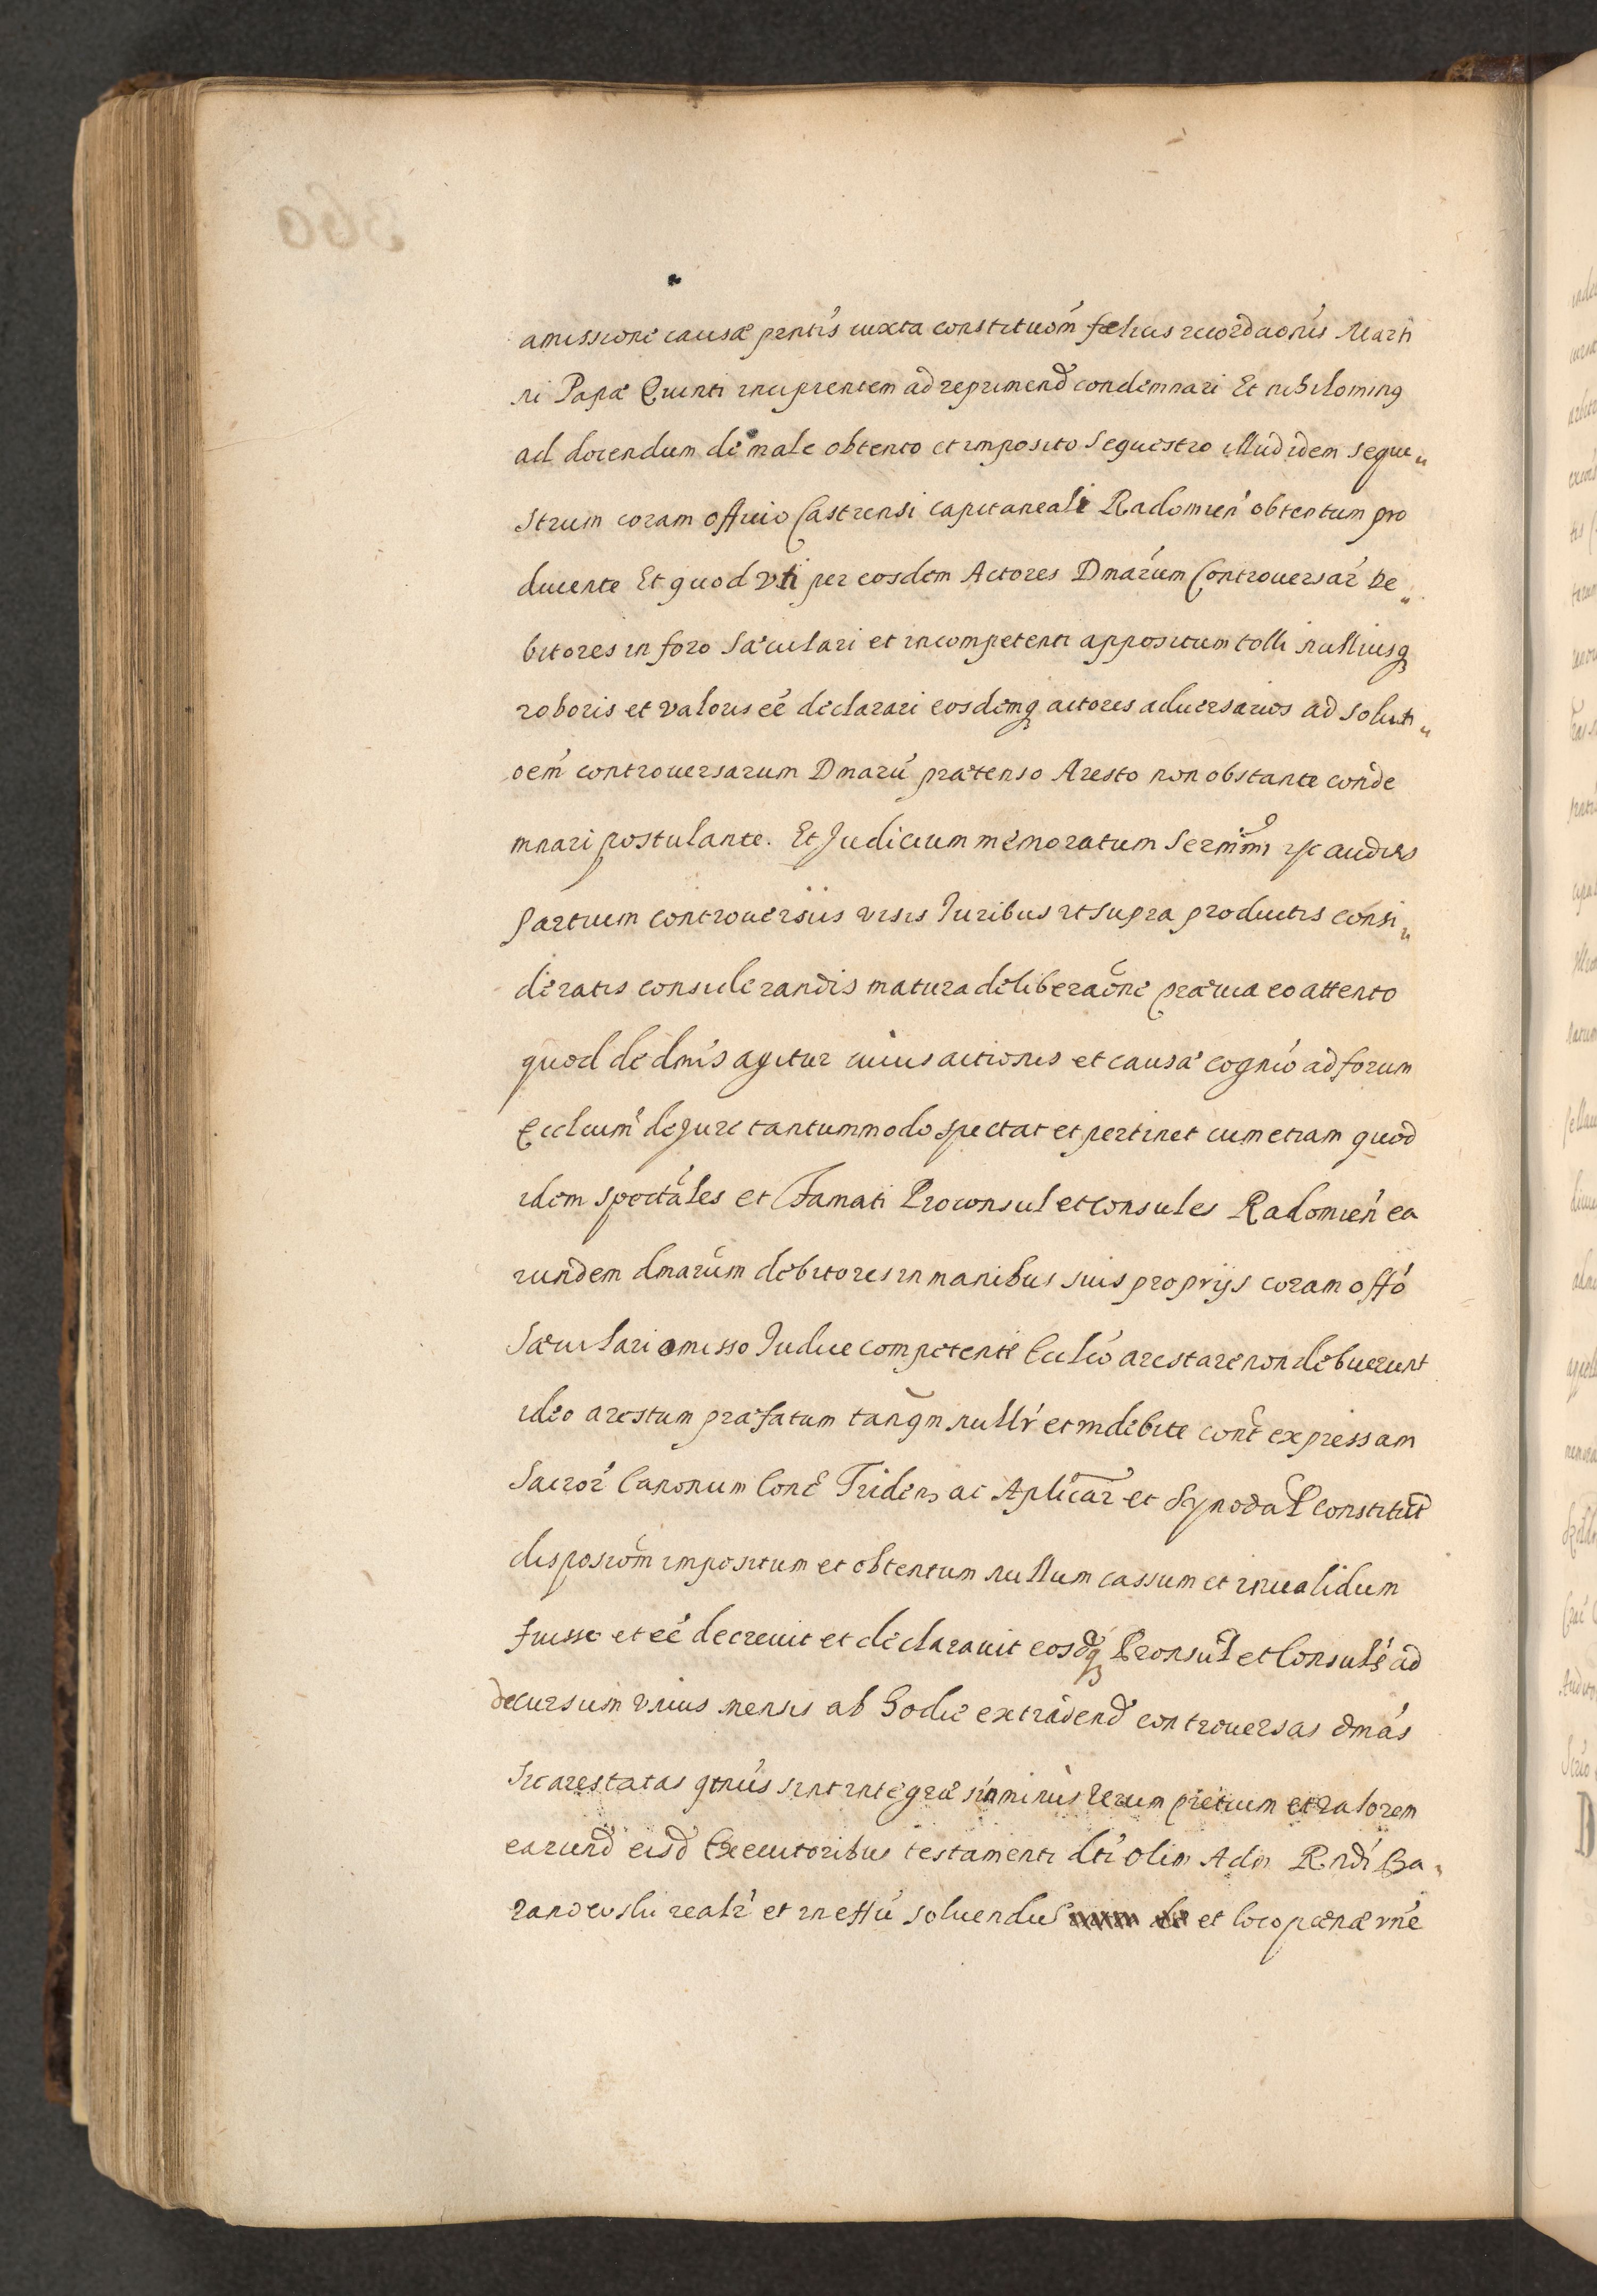 amissione causæ pntis iuxta constituóm fælicis recordaonis Marti
ni Papæ Quinti incipientem ad reprimend condemnari Et nihilominq
ad docendum de male obtento et imposito Sequestro illud idem seque„
strum coram officio Castrensi capitaneali Radomien obtentum pro
ducente Et quod vti per eosdem Actores Dmarum Controuersar De„
bitores in foro Sæculari et incompetenti appositum tolli nulliusq
roboris et valoris eé declarari eosdemq actores aduersarios ad soluti„
oem controuersarum Dmarú prætenso Aresto non obstante conde
mnari postulante. Et Judicium memoratum audits
Partium controuersiis visis Iuribus vt supra productis consi„
deratis considerandis matura deliberaóne præuia eo attento
quod de dmis agitur cuius actionis et causæ cognió ad forum
Eccleum de Jure tantummodo spectat et pertinet cum etiam quod
idem spectáles et Famati Proconsul et Consules Radomien ea
rundem dmarum debitores in manibus suis proprijs coram offó
Sæculari omisso Iudice competente Eccleó arestare non debuerunt
ideo arestum præfatum tanqm nullr et indebite cont expressam
Sacror Canonum Conc Triden ac Aplicar et Synodal Constitut
disposióm impositum et obtentum nullum cassum et inualidum
fuisse et eé decreuit et declarauit eosdq Pronsul et Consulé ad
decursum vnius mensis ab hodie extradend controuersas dmás
Sic arestatas qtnus sint integræ sinminus verum pretium et valorem
earund eisd Executoribus testamenti dti olim Adm Rndi Ba„
ranowski realr et in effú soluendus et loco pænæ vné
360